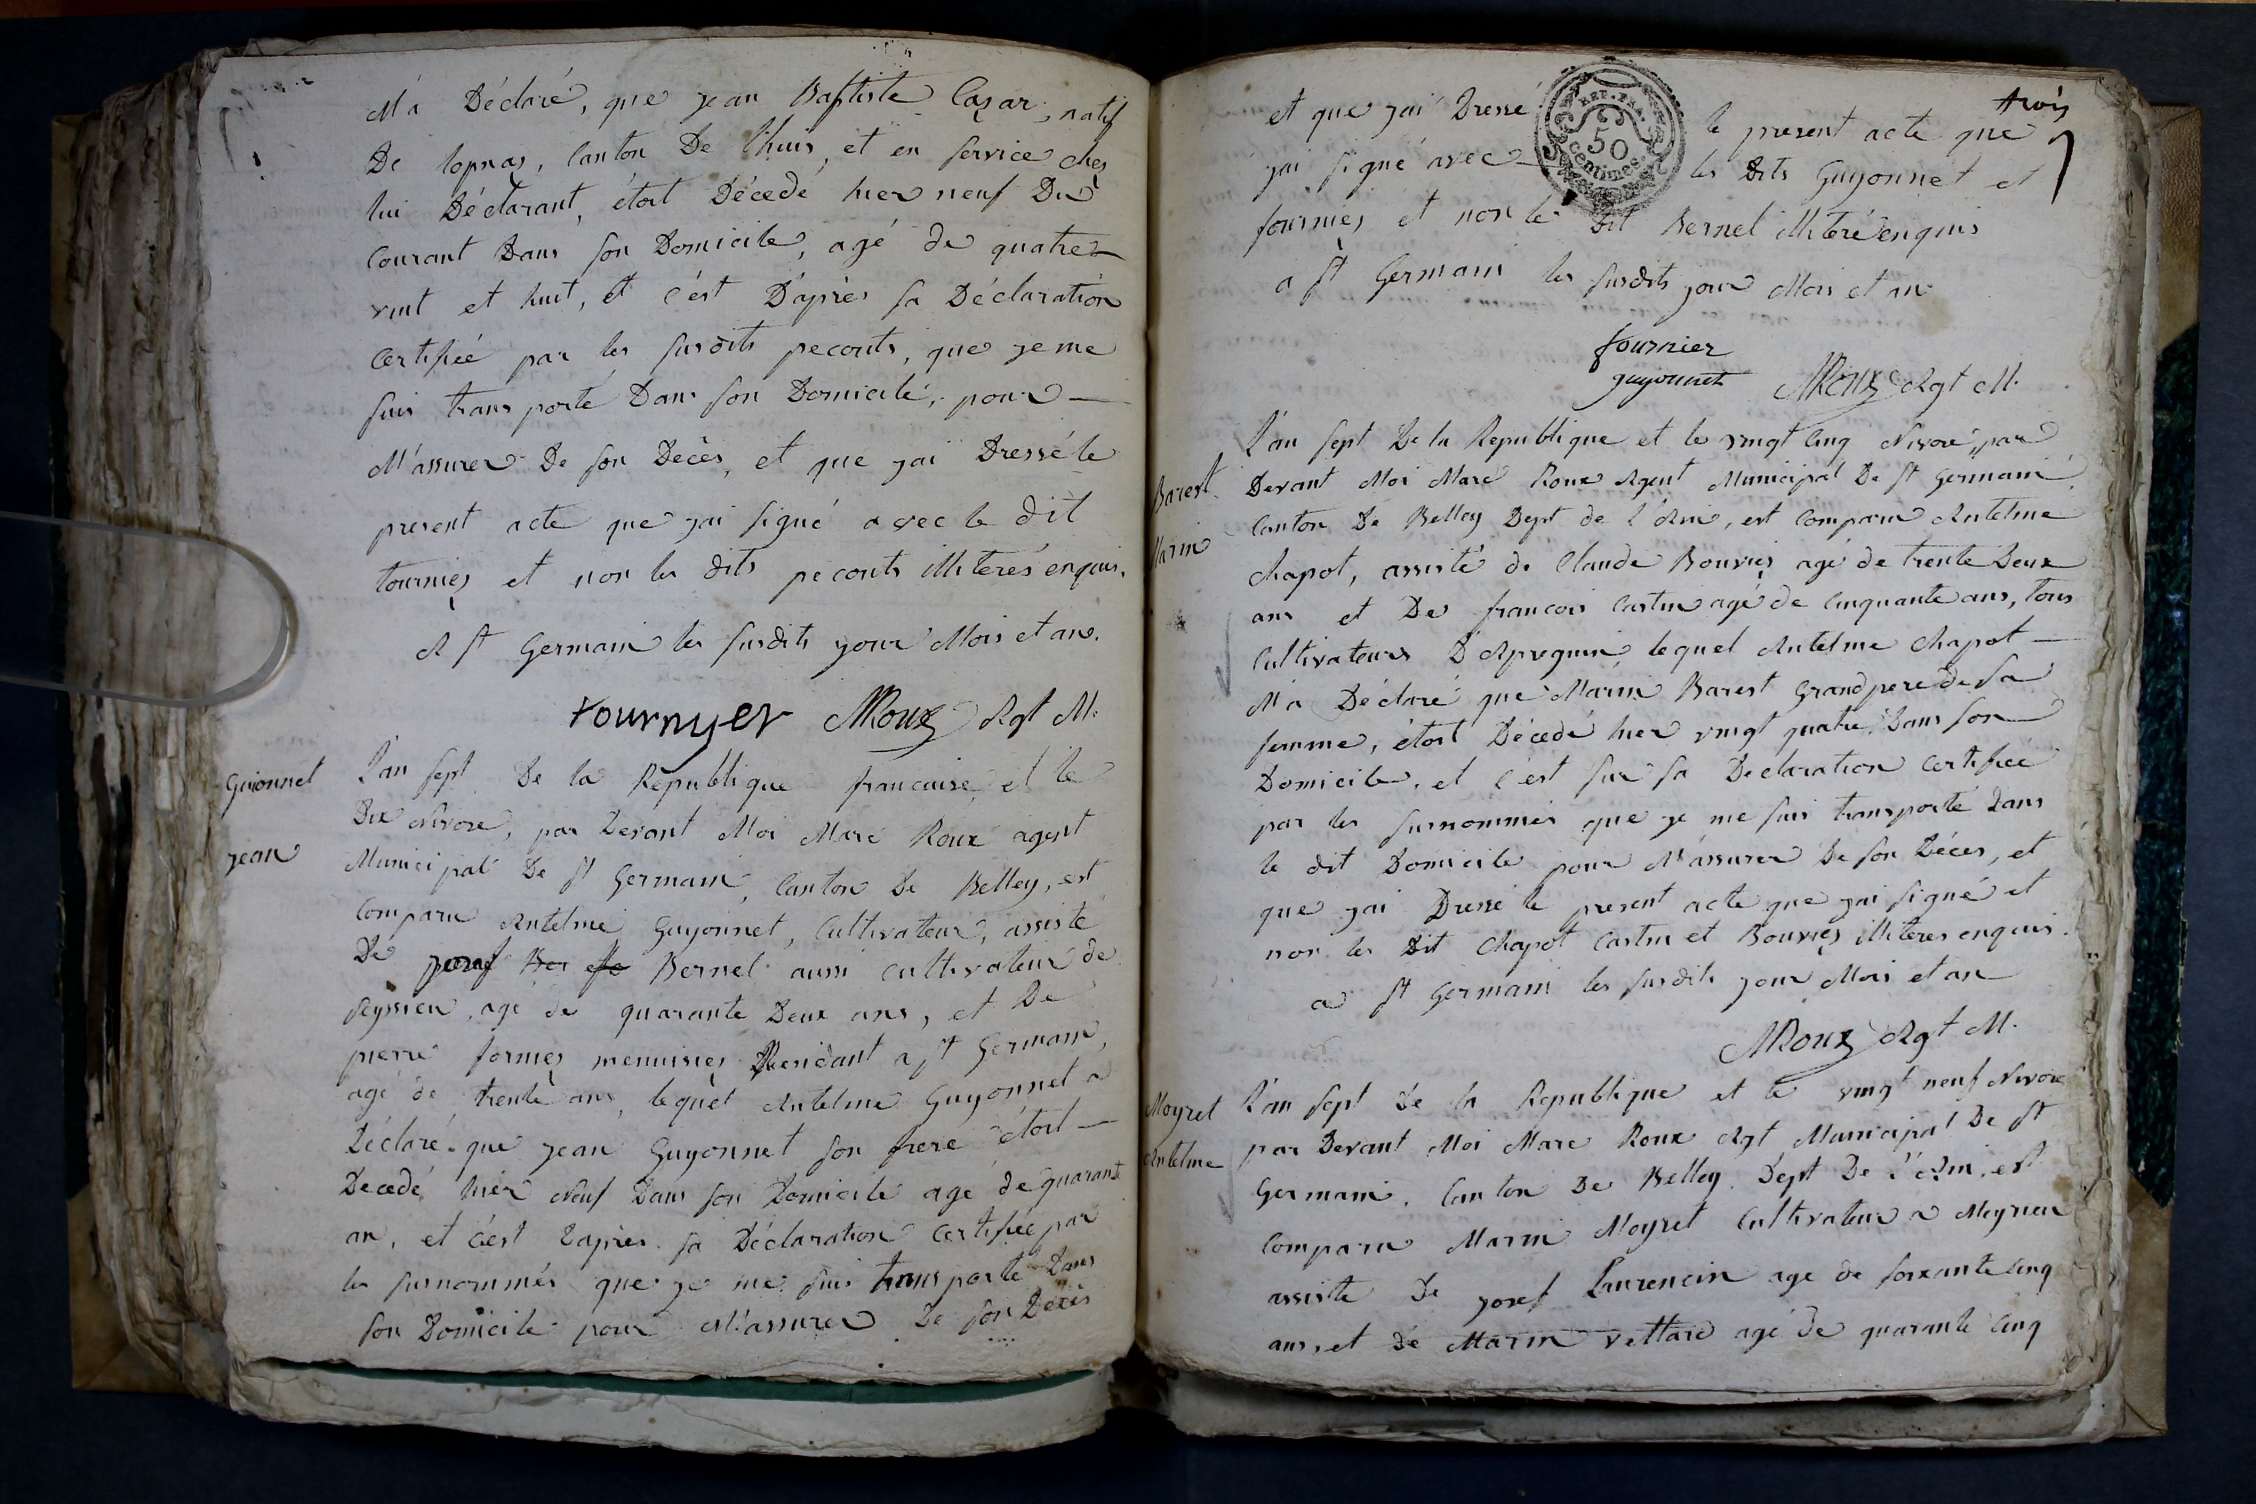 M'a Déclaré, que jean Baptiste Cazar, natif
De lopnas, Canton De l'huis, et en service chés
lui Déclarant, étoit Décedé hier neuf Du
Courant Dans son Domicile, agé de quatre
vint et huit, et c'est D'après sa Déclaration
Certifiée par les susdits pecouts, que je me
suis transporté Dans son Domicile, pour
M'assurer De son Décès, et que jai Dressé le
present acte que jai signé avec le dit
tournier et non les dits pecouts illiterés enquis.
A St Germain les susdits jour Mois et an.
tournyer MRoux Agt M.
Guionnet
jean
L'an sept De la Republique francaise et le
Dix Nivose, par Devant Moi Marc Roux agent
Municipal De St Germain, Canton De Belley, est
Comparu Antelme Guyonnet, Cultivateur, assisté
De josef Ber Bernel aussi cultivateur de
Seyssieu, agé de quarante Deux ans, et De
pierre fornier menuisier Residant a St Germain,
agé de trente ans, lequel Antelme Guyonnet a
Déclaré que jean Guyonnet son frere étoit
Decedé hier Neuf Dans son Domicile agé de quarante
an, et c'est Dapres sa Déclaration Certifiée par
les surnommés que je me suis transporté Dans
son Domicile pour M'assurer De son Décès
trois
et que jai Dressé le present acte que
REP. FRA.
50
centimes.
jai signé avec les Dits Guyonnet et
fournier et non le Dit Bernel illiteré enquis
a St Germain les susdits jour Mois et an
fournier
guyonnet MRoux Agt M.
Barest
Marin
L'an sept De la Republique et le vingt Cinq Nivose, par
Devant Moi Marc Roux Agent Municipal De St Germain
Canton De Belley Dept de l'Ain, est Comparu Antelme
Chapot, assisté de Claude Bouvier agé de trente Deux
ans et De francois Castin agé de Cinquante ans, tous
Cultivateurs D'Apregnin, lequel Antelme Chapot
M'a Déclaré que Marin Barest Grand pere de sa
femme, étoit Décedé hier vingt quatre Dans son
Domicile, et c'est sur sa Declaration Certifiée
par les surnommés que je me suis transporté dans
le dit Domicile pour M'assurer De son Décès, et
que jai Dressé le present acte que jai signé et
non les Dit Chapot Castin et Bouvier illiteres enquis.
a St Germain les susdits jour Mois et an
MRoux Agt M.
Moyret
Antelme
L'an sept De la Republique et le vingt neuf Nivose
par Devant Moi Marc Roux Agt Municipal De St
Germain. Canton De Belley Dept De l'Ain, est
Comparu Marin Moyret Cultivateur a Meyrieu
assisté De josef Laurencin agé de soixante Cinq
ans, et De Marin Vettard agé de quarante Cinq